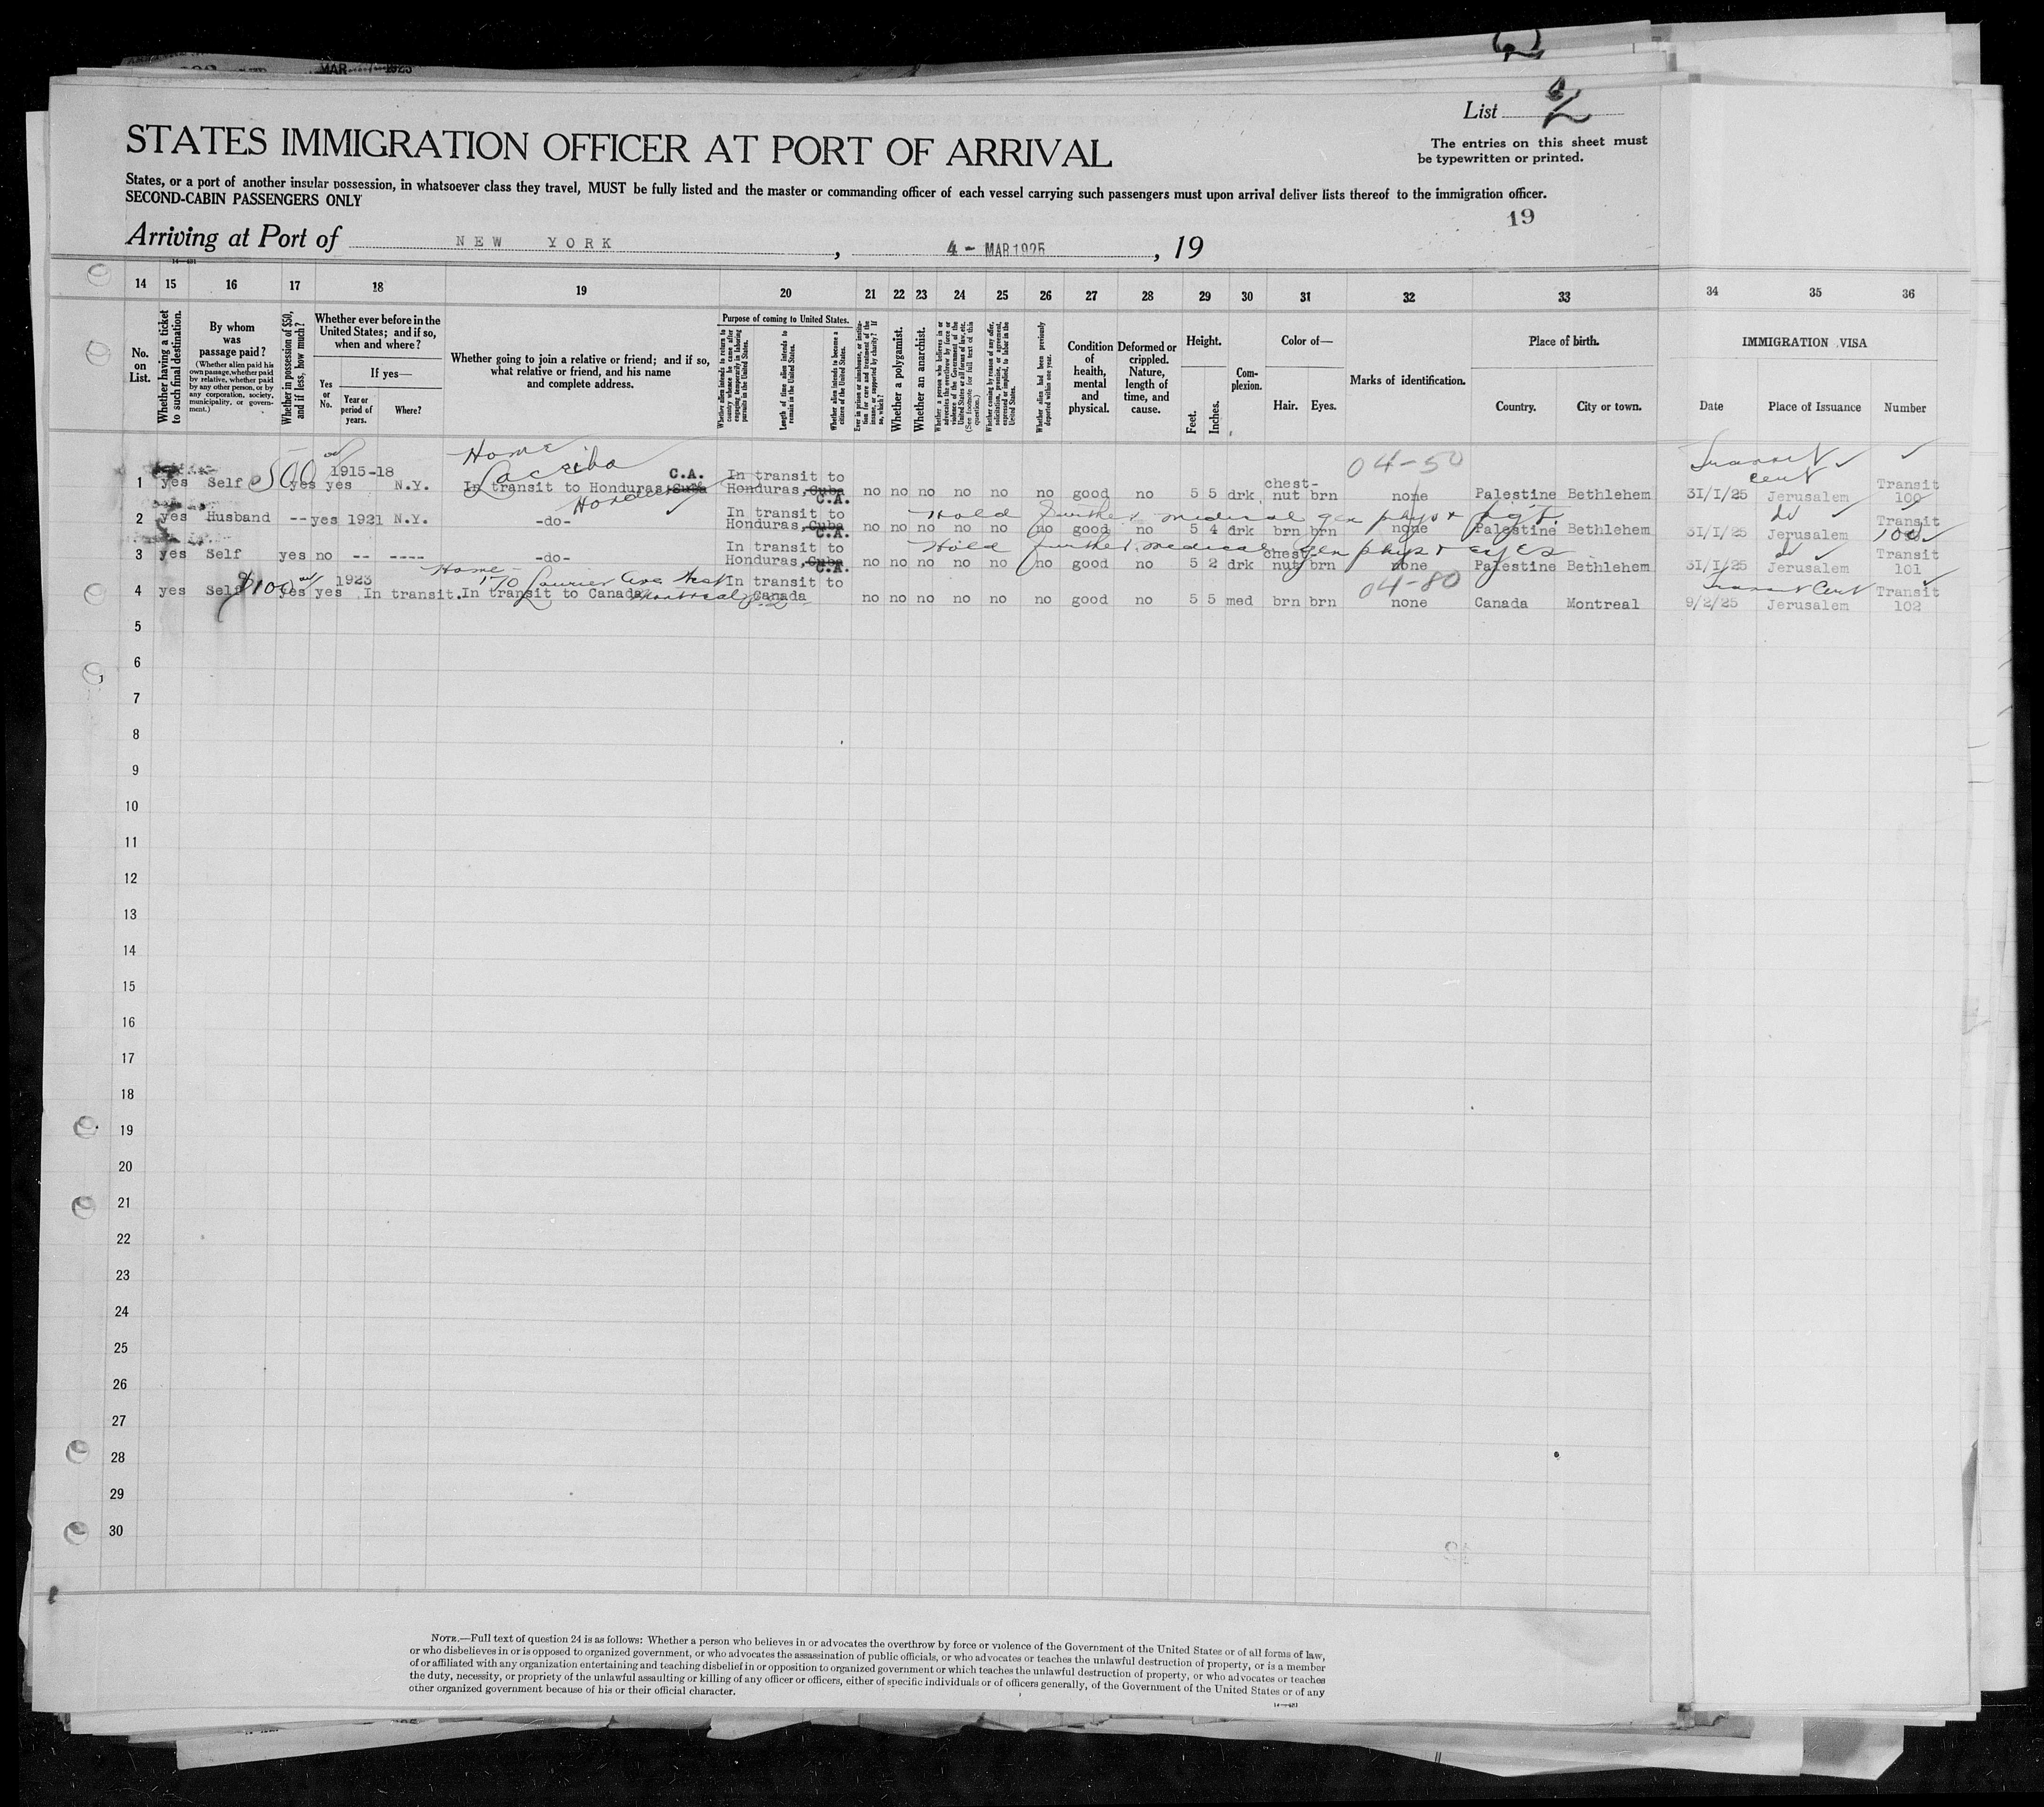 MAR 1923
List 2
STATES IMMIGRATION OFFICER AT PORT OF ARRIVAL
The entries on this sheet must
be typewritten or printed.
States, or a port of another insular possession, in whatsoever class they travel, MUST be fully listed and the master or commanding officer of each vessel carrying such passengers must upon arrival deliver lists thereof to the immigration officer.
SECOND-CABIN PASSENGERS ONLY
19
Arriving at Port of NEW YORK, 4 - MAR 1925, 19
14—491
14 15 16 17 18 19 20 21 22 23 24 25 26 27 28 29 30 31 32 33 34 35 36
No. on List.
Whether having a ticket to such final destination.
By whom was passage paid?
(Whether alien paid his own passage, whether paid by relative, whether paid by any other person, or by any corporation, society, municipality, or government.)
Whether in possession of $50, and if less, how much?
Whether ever before in the United States; and if so, when and where?
Yes or No.
If yes—
Year or period of years.
Where?
Whether going to join a relative or friend; and if so, what relative or friend, and his name and complete address.
Purpose of coming to United States.
Whether alien intends to return to country whence he came after engaging temporarily in laboring pursuits in the United States.
Length of time alien intends to remain in the United States.
Whether alien intends to become a citizen of the United States.
Ever in prison or almshouse, or institution for care and treatment of the insane, or supported by charity? If so, which?
Whether a polygamist.
Whether an anarchist.
Whether a person who believes in or advocates the overthrow by force or violence of the Government of the United States or all forms of law, etc. (See footnote for full text of this question.)
Whether coming by reason of any offer, solicitation, promise, or agreement, expressed or implied, to labor in the United States.
Whether alien had been previously deported within one year.
Condition of health, mental and physical.
Deformed or crippled. Nature, length of time, and cause.
Height.
Feet. Inches.
Complexion.
Color of—
Hair. Eyes.
Marks of identification.
Place of birth.
Country. City or town.
IMMIGRATION VISA
Date Place of Issuance Number
Home
La Ceiba
Honduras
04-50
Transit Cert
1 yes Self $500 yes yes 1915-18 N.Y. In transit to Honduras, Cuba C.A. In transit to Honduras, Cuba C.A. no no no no no no good no 5 5 drk chest-nut brn none Palestine Bethlehem 31/I/25 Jerusalem Transit 100
Hold further medical gen phys +
2 yes Husband -- yes 1921 N.Y. -do- In transit to Honduras, Cuba C.A. no no no no no no good no 5 4 drk brn brn none Palestine Bethlehem 31/I/25 Jerusalem Transit 100
Hold further medical gen phys + eyes
3 yes Self yes no -- ---- -do- In transit to Honduras, Cuba C.A. no no no no no no good no 5 2 drk chest-nut brn none Palestine Bethlehem 31/I/25 Jerusalem Transit 101
Home - 170 Laurier Ave West Montreal
04-80
Transit Cert
4 yes Self $100 yes yes 1923 In transit. In transit to Canada In transit to Canada no no no no no no good no 5 5 med brn brn none Canada Montreal 9/2/25 Jerusalem Transit 102
5
6
7
8
9
10
11
12
13
14
15
16
17
18
19
20
21
22
23
24
25
26
27
28
29
30
NOTE.—Full text of question 24 is as follows: Whether a person who believes in or advocates the overthrow by force or violence of the Government of the United States or of all forms of law,
or who disbelieves in or is opposed to organized government, or who advocates the assassination of public officials, or who advocates or teaches the unlawful destruction of property, or is a member
of or affiliated with any organization entertaining and teaching disbelief in or opposition to organized government or which teaches the unlawful destruction of property, or who advocates or teaches
the duty, necessity, or propriety of the unlawful assaulting or killing of any officer or officers, either of specific individuals or of officers generally, of the Government of the United States or of any
other organized government because of his or their official character.
14—491